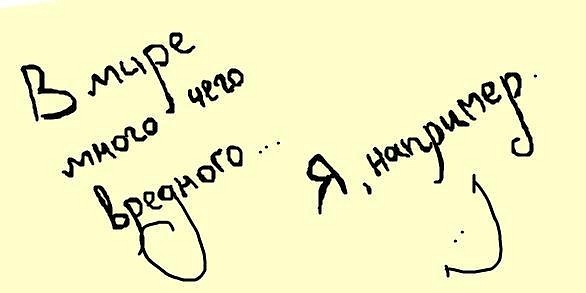 В мире
много чего
вредного...
Я, например.